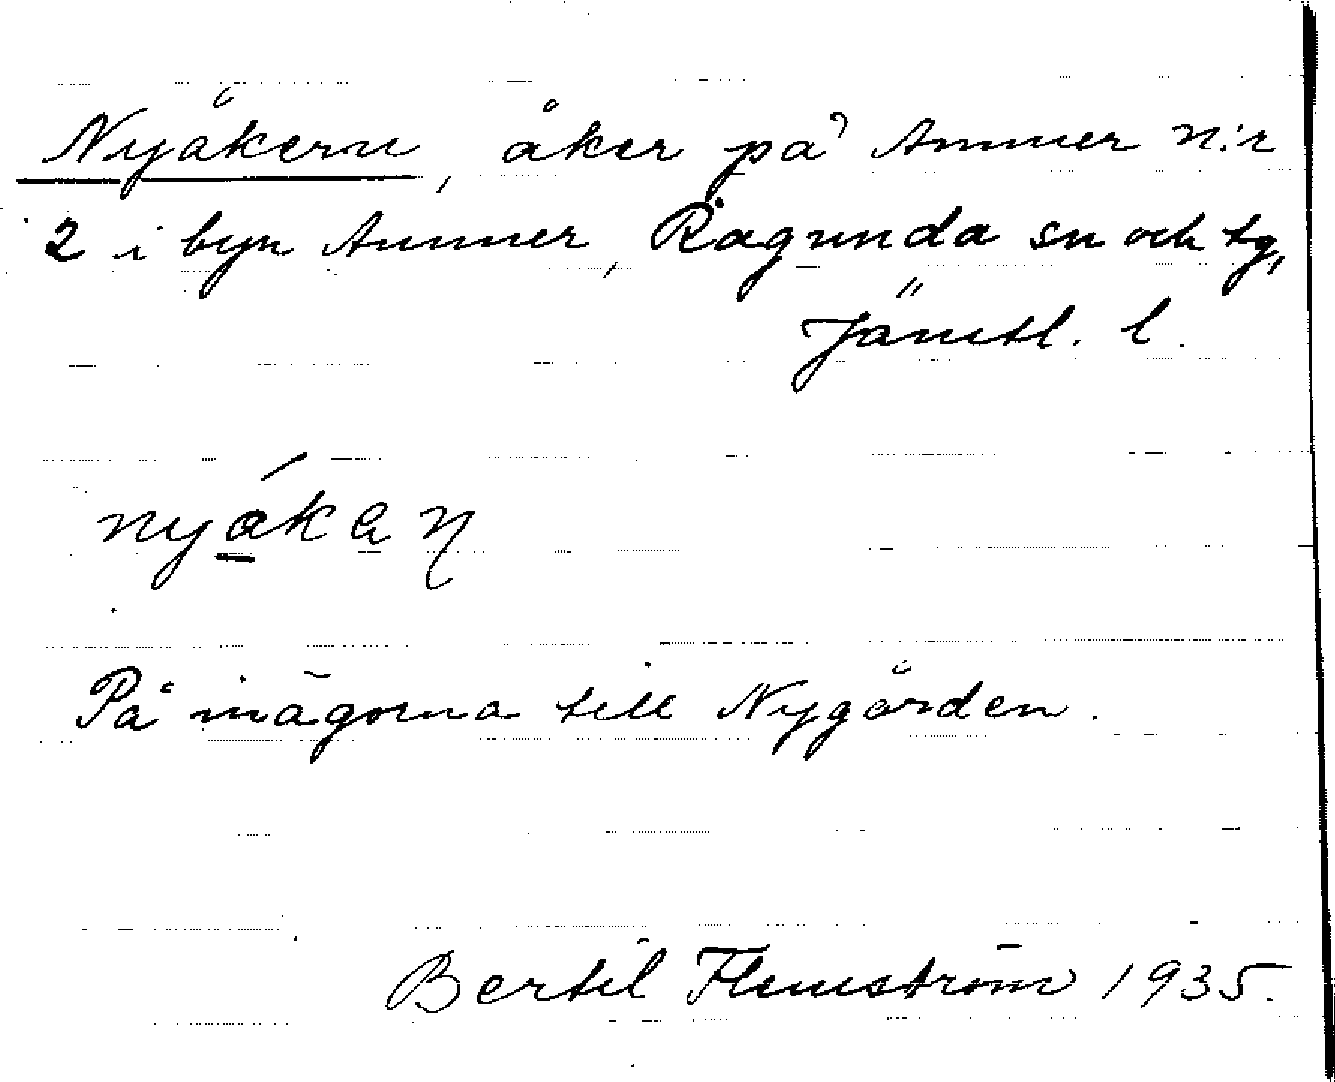 Nyåkern, åker på Ammer n:r
2 i byn Ammer, Ragunda sn och tg,
Jämtl. l.
nyåkaṇ
På inägorna till Nygården.
Bertil Flemström 1935.